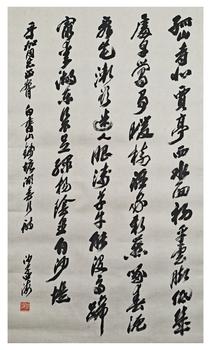 孤山寺北賈亭西水面初平雲腳低幾
處早鶯爭暖樹誰家新燕啄春泥
亂花漸欲迷人眼淺草才能沒馬蹄
最愛湖東行不足綠楊陰裏白沙堤
同志正 白香山錢塘湖春行詩
沙孟海